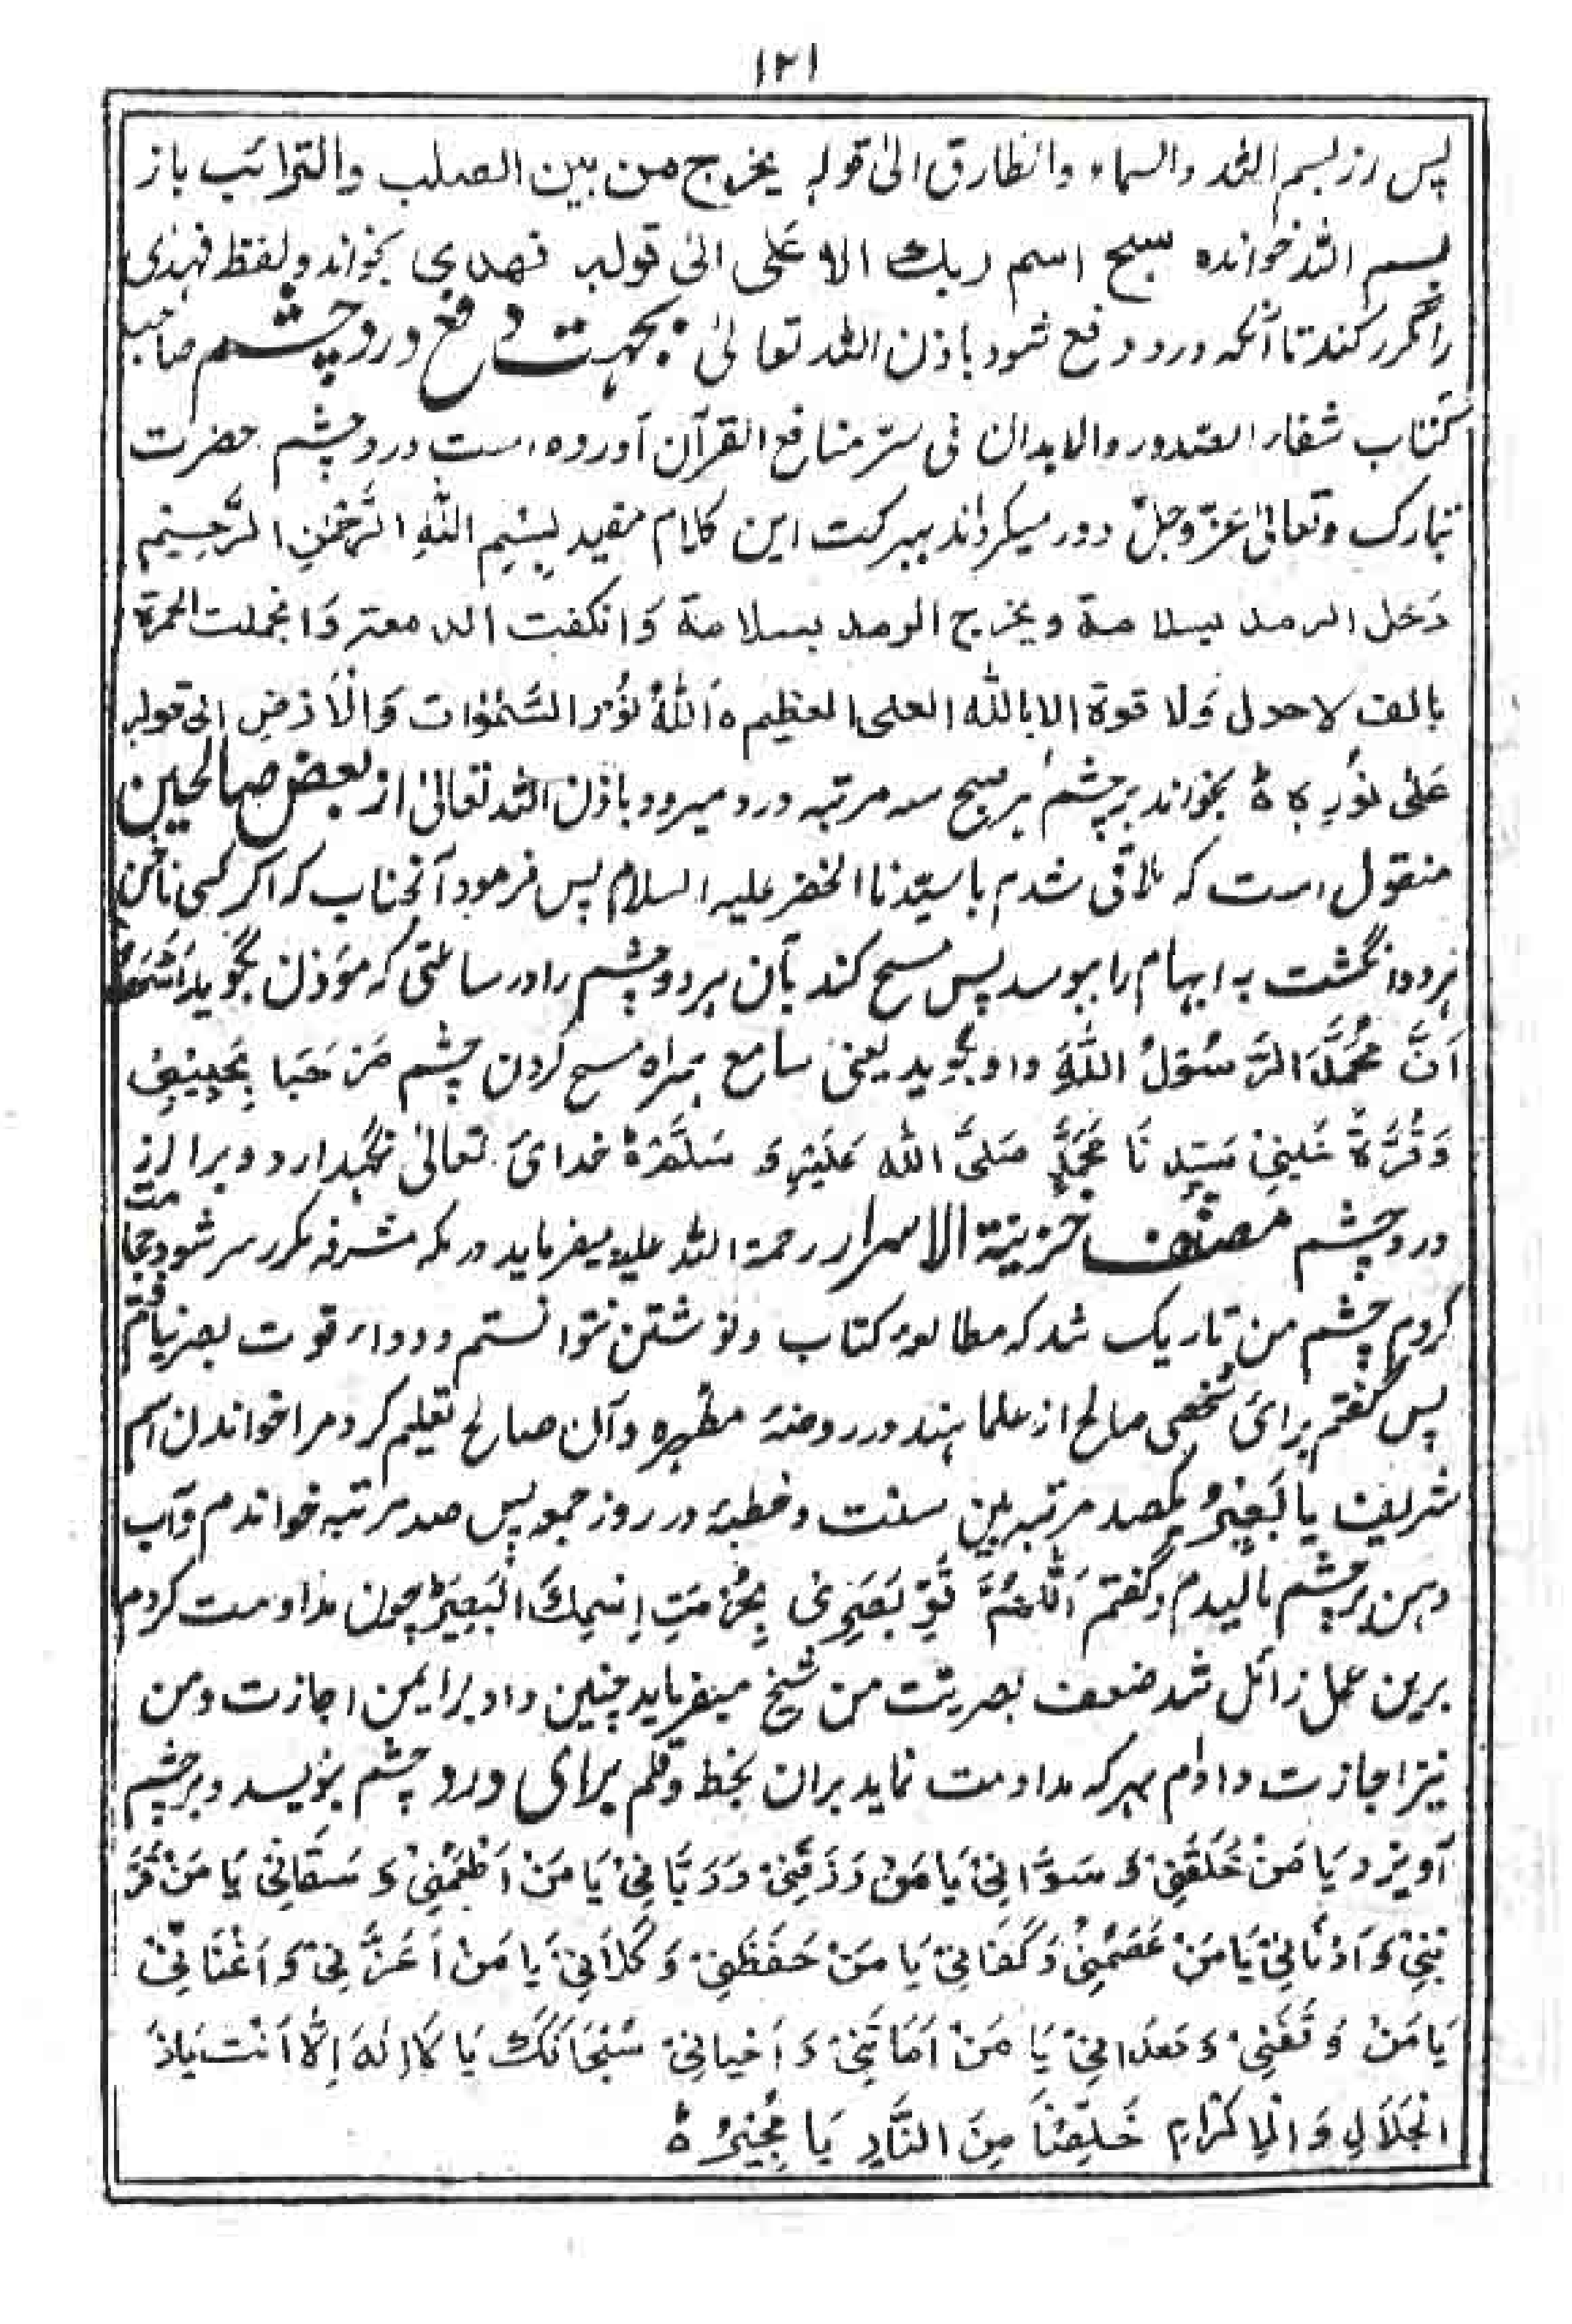 ۱۲۱
پس از بسم الله والسماء والطارق الیٰ قولہ یخرج من بین الصلب والترائب باز
بسم اللہ خواندہ سبح اسم ربك الاعَلی الیٰ قولہ فهدی بخواند و لفظ فہدٰی
را مکرر کند تا آنکہ درد دفع شود باذن اللہ تعالیٰ ؛ بجہت دفع درد چشم صاحب
کتاب شفاء الصدور والابدان فی سرّ منافع القرآن آوردہ است درد چشم حضرت
تبارک وتعالیٰ عَزّ وجلّ دور میگرداند ببرکت این کلام مفید بِسْمِ اللهِ الرَّحْمٰنِ الرَّحِیْمِ
دَخل الرمد بسلامة ویخرج الرمد بسلامة وَانکفت الدمعتہ وَانجملت الحمرة
بالف لاحول وَلا قوة الا بالله العلی العظیم ہ اَللهُ نُوْرُ السَّمٰوٰات وَالْاَرْضِ الی قولہ
عَلٰی نُوْرٍ ہ بخواند بر چشم ہر صبح سہ مرتبہ درد میرود باذن اللہ تعالیٰ از بعض صالحین
منقول است کہ ملاقی شدم با سیّدنا الخضر علیہ السلام پس فرمود آنجناب کہ اگر کسی ناخن
ہر دو انگشت بہ ابہام را ببوسد پس مسح کند بآن ہر دو چشم را در ساعتی کہ مؤذن بگوید اَشْهَدُ
اَنَّ مُحَمَّدَ الرَّسُوْلُ اللهِ و او بگوید یعنی سامع ہمراہ مسح کردن چشم مَرْحَبَا بِحَبِیْبِیْ
وَقُرَّةُ عَیْنِیْ سَیِّدِنَا مُحَمَّدٍ صَلَّی الله عَلَیْہِ وَ سَلَّمَ ہْ خدائے تعالیٰ نگہدارد ویرا از
درد چشم مصنّف خزینة الاسرار رحمة اللہ علیہ میفرماید در مکہ مشرفہ مکرر سر شود حجامت
کردم چشم من تاریک شد کہ مطالعۂ کتاب و نوشتن نتوانستم و دواء قوت بصر نیافتم
پس گفتم برائ شخصی صالح از علما ہند در روضۂ مطہرہ و آن صالح تعلیم کرد مرا خواندن اسم
شریف یا بَصِیْرُ یکصد مرتبہ بین سنت و خطبہ در روز جمعہ پس صد مرتبہ خواندم و آب
دہن بر چشم مالیدم و گفتم اَللّٰهُمَّ قَوِّ بَصَرِیْ بِحُرْمَتِ اِسْمِكَ الْبَصِیْرُ چون مداومت کردم
برین عمل زائل شد ضعف بصریت من شیخ میفرماید چنین داد برایمن اجازت و من
نیز اجازت دادم بہر کہ مداومت نماید بران بخط و قلم برای درد چشم بنویسد و بر چشم
آویزد یَا مَنْ خَلَقَنِیْ وَ سَوَّانِیْ یَا مَنْ رَزَقَنِیْ وَرَبَّانِیْ یَا مَنْ اَطْعَمَنِیْ وَ سَقَانِیْ یَا مَنْ قَرَّ
بَنِیْ وَ اَدْنَانِیْ یَا مَنْ عَصَمَنِیْ وَ کَفَانِیْ یَا مَنْ حَفَظَنِیْ وَ کَلَاَنِیْ یَا مَنْ اَعَزَّنِیْ وَ اَغْنَانِیْ
یَا مَنْ وَفَقَنِیْ وَ هَدَانِیْ یَا مَنْ اَمَاتَنِیْ وَ اَحْیانِیْ سُبْحَانَكَ یَا لَااِلٰهَ اِلَّا اَنْتَ یَاذَ
الْجَلَالِ وَ الْاِکْرَامِ خَلِّصْنَا مِنَ النَّارِ یَا مُجِیْرُ ہ